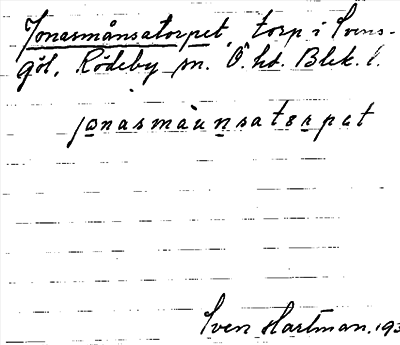 Jonasmånsatorpet, torp i Svens-
göl, Rödeby sn. Ö. hd. Blek. l.
jonasmåunsatərpat
Sven Hartman. 193